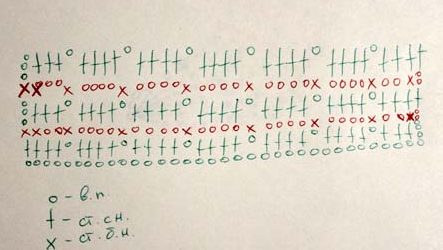 o - в.п.
† - ст.сн.
x - ст.б.н.